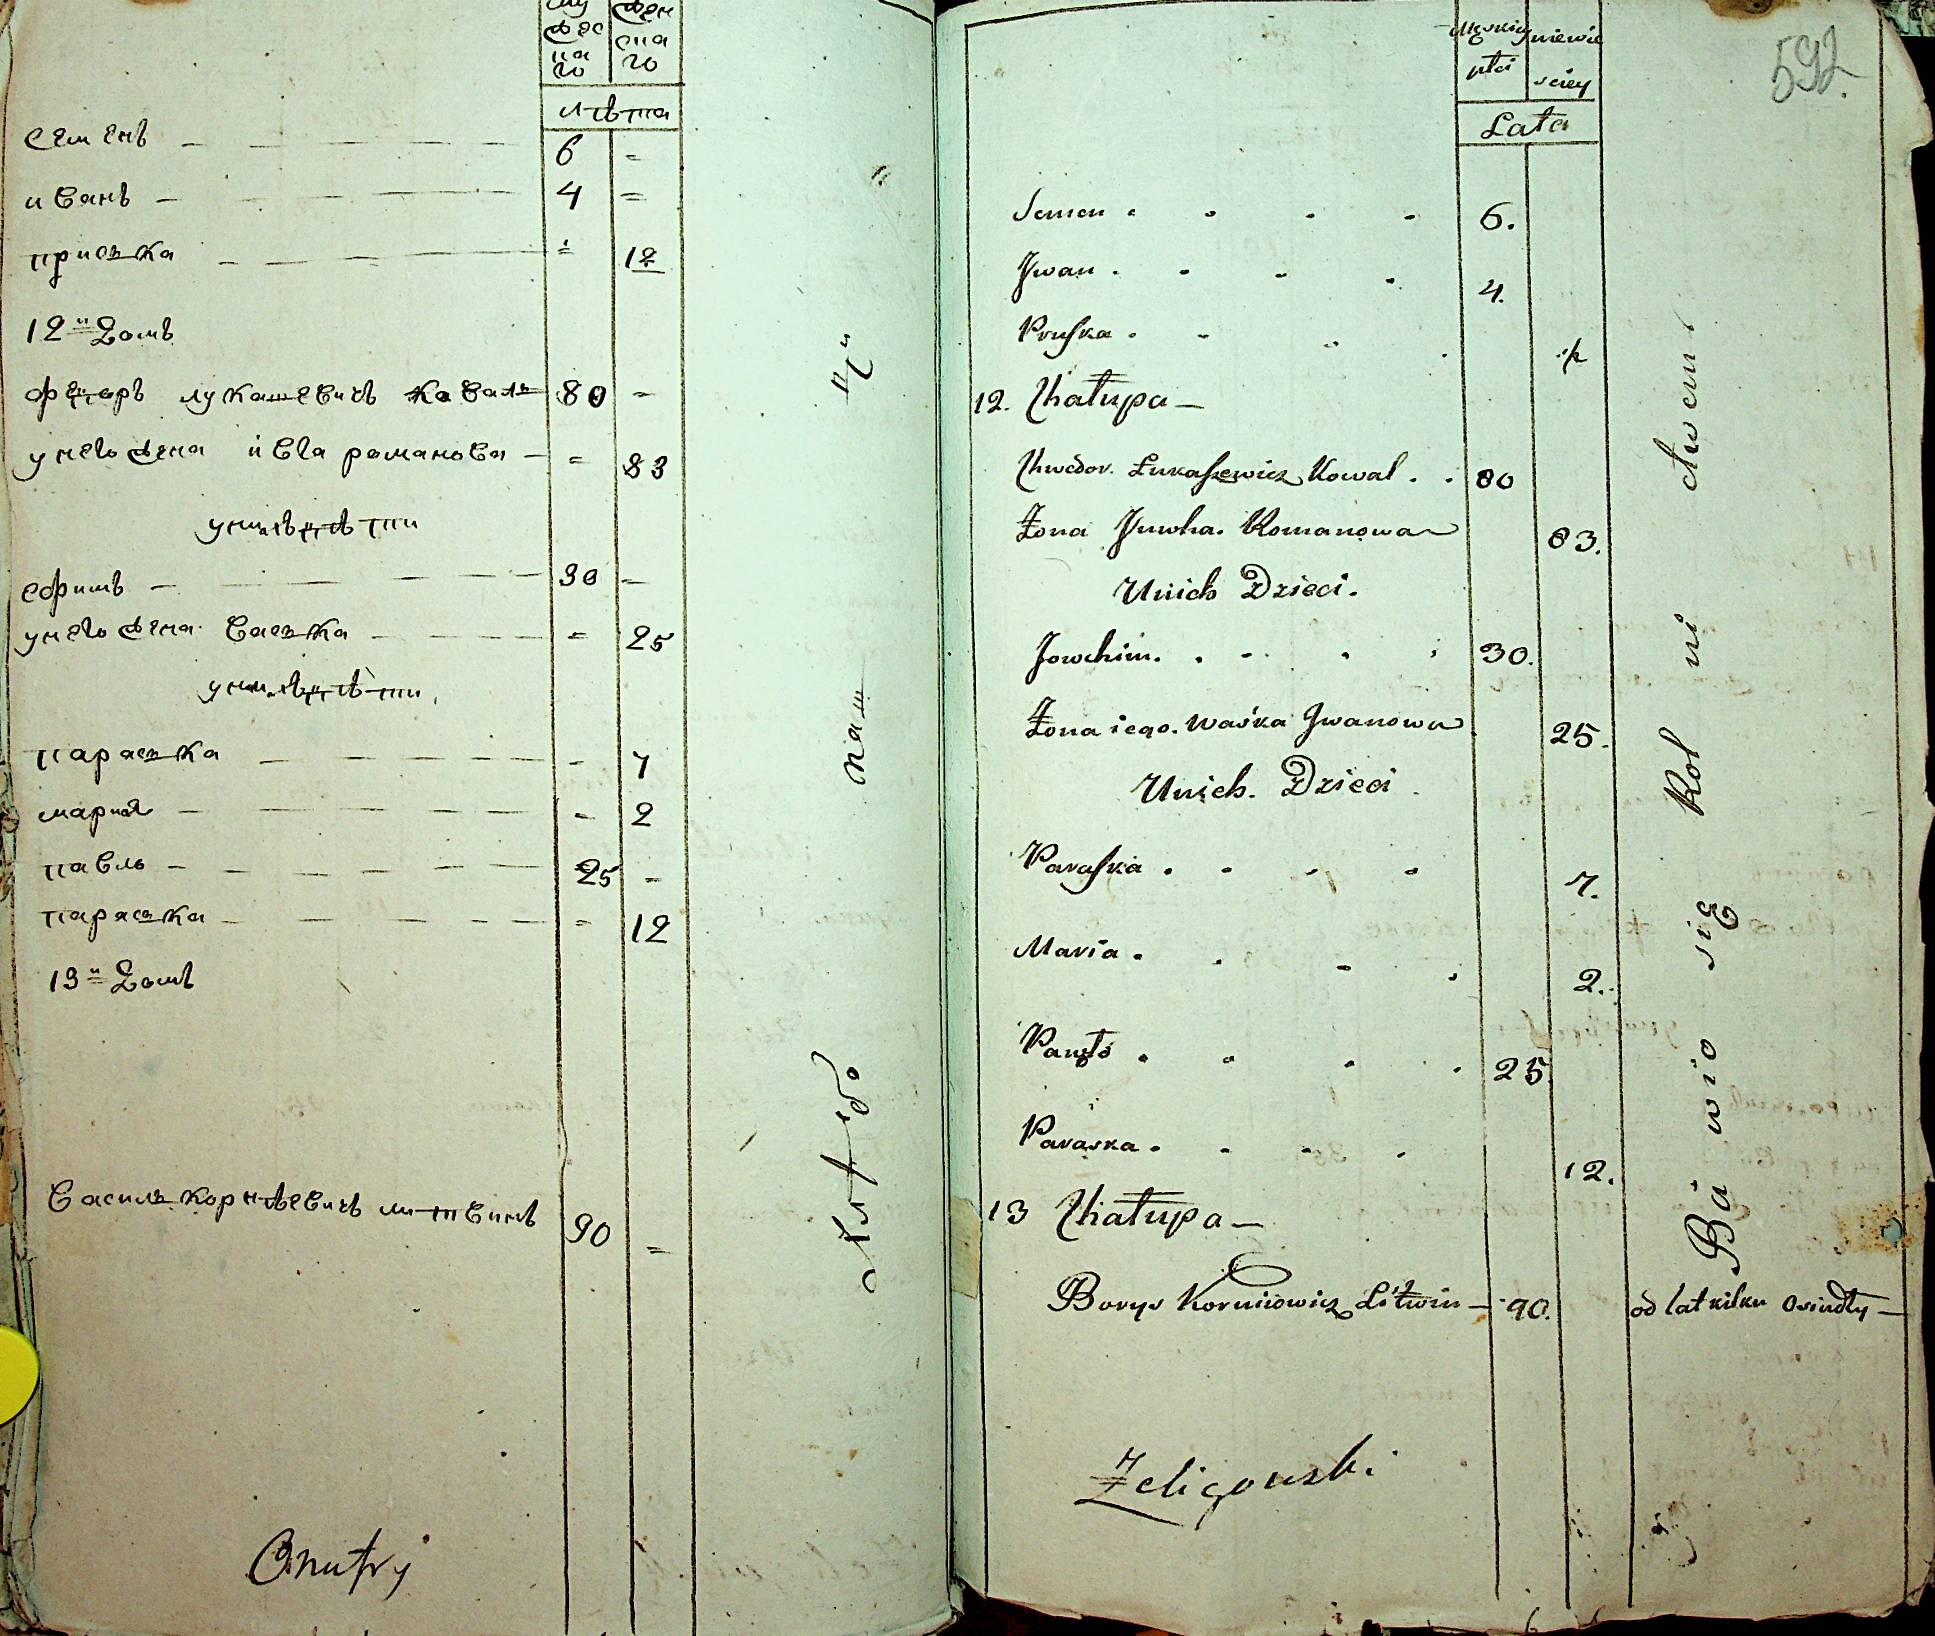 му жес на го
жен сна го
лѣта
семенъ 6 =
иванъ 4 =
приська = 12
12й домъ
феѡдоръ лукашевичъ коваль 80 -
у него жена ївга романова = 83
у них дѣти
ефимъ 30 =
у него жена васька = 25
у них дѣти
параска - 7
мария - 2
павлъ 25 -
параска = 12
13й домъ
василь корнѣевичъ литвинъ 90 =
Onufry
хлѣбо паш ц
592.
Męzkiey płci
niewieściey
Lata
Semen 6.
Jwan 4.
Pruska
12. Chałupa
Chwedor Łukaszewicz Kowal 80
Żona Juwha Romanowa 83.
U nich Dzieci.
Jowchim 30.
Żona iego Waśka Jwanowa 25.
U nich Dzieci
Paraska 7.
Maria 2.
Pawło 25.
Paraska 12.
13 Chałupa
Borys Korniiowicz Litwin 90. od lat kilku Osiadły
Żeligowski
Bawio się Rolnictwem